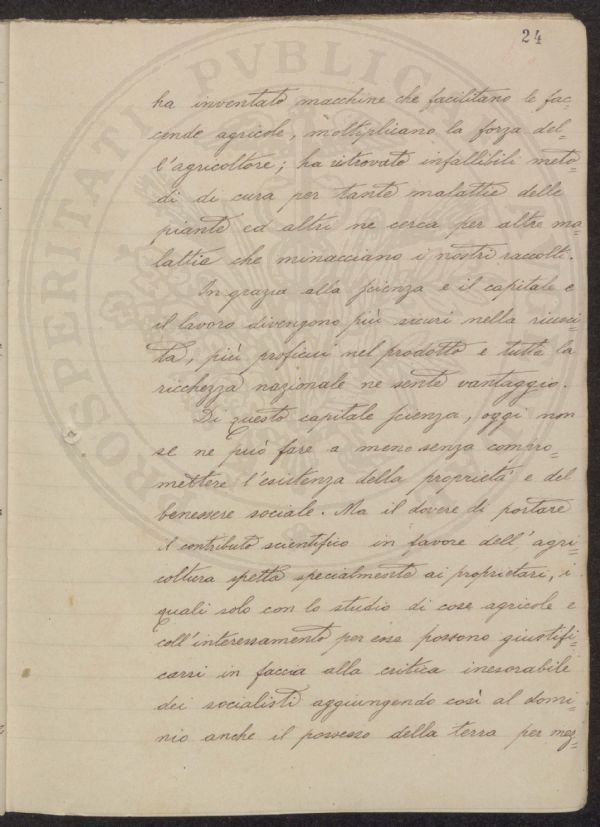 24
ha inventato macchine che facilitano le fac-
cende agricole, moltiplicano la forza del-
l'agricoltore; ha ritrovato infallibili meto-
di di cura per tante malattie delle
piante ed altri ne cerca per altre ma-
lattie che minacciano i nostri raccolti.
In grazia alla scienza e il capitale e
il lavoro divengono più sicuri nella riusci-
ta, più proficui nel prodotto e tutta la
ricchezza nazionale ne sente vantaggio.
Di questo capitale scienza, oggi non
se ne può fare a meno senza compro-
mettere l'esistenza della proprietà e del
benessere sociale. Ma il dovere di portare
il contributo scientifico in favore dell'agri-
coltura spetta specialmente ai proprietari, i
quali solo con lo studio di cose agricole e
coll'interessamento per esse possono giustifi-
carsi in faccia alla critica inesorabile
dei socialisti aggiungendo così al domi-
nio anche il possesso della terra per mez-
PROSPERITATI PVBLICAE